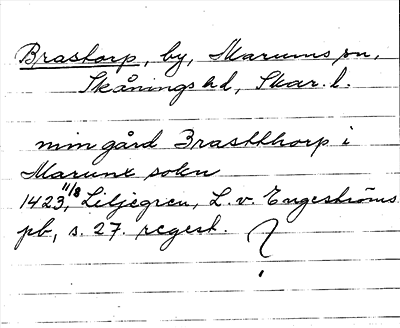 Brastorp, by, Marums sn,
Skånings hd, Skar. l.
min gård Brastthorp i
Marunx sokn
1423 11/8, Liljegren, L. v. Engeströms
pb, s. 27. regest. ?